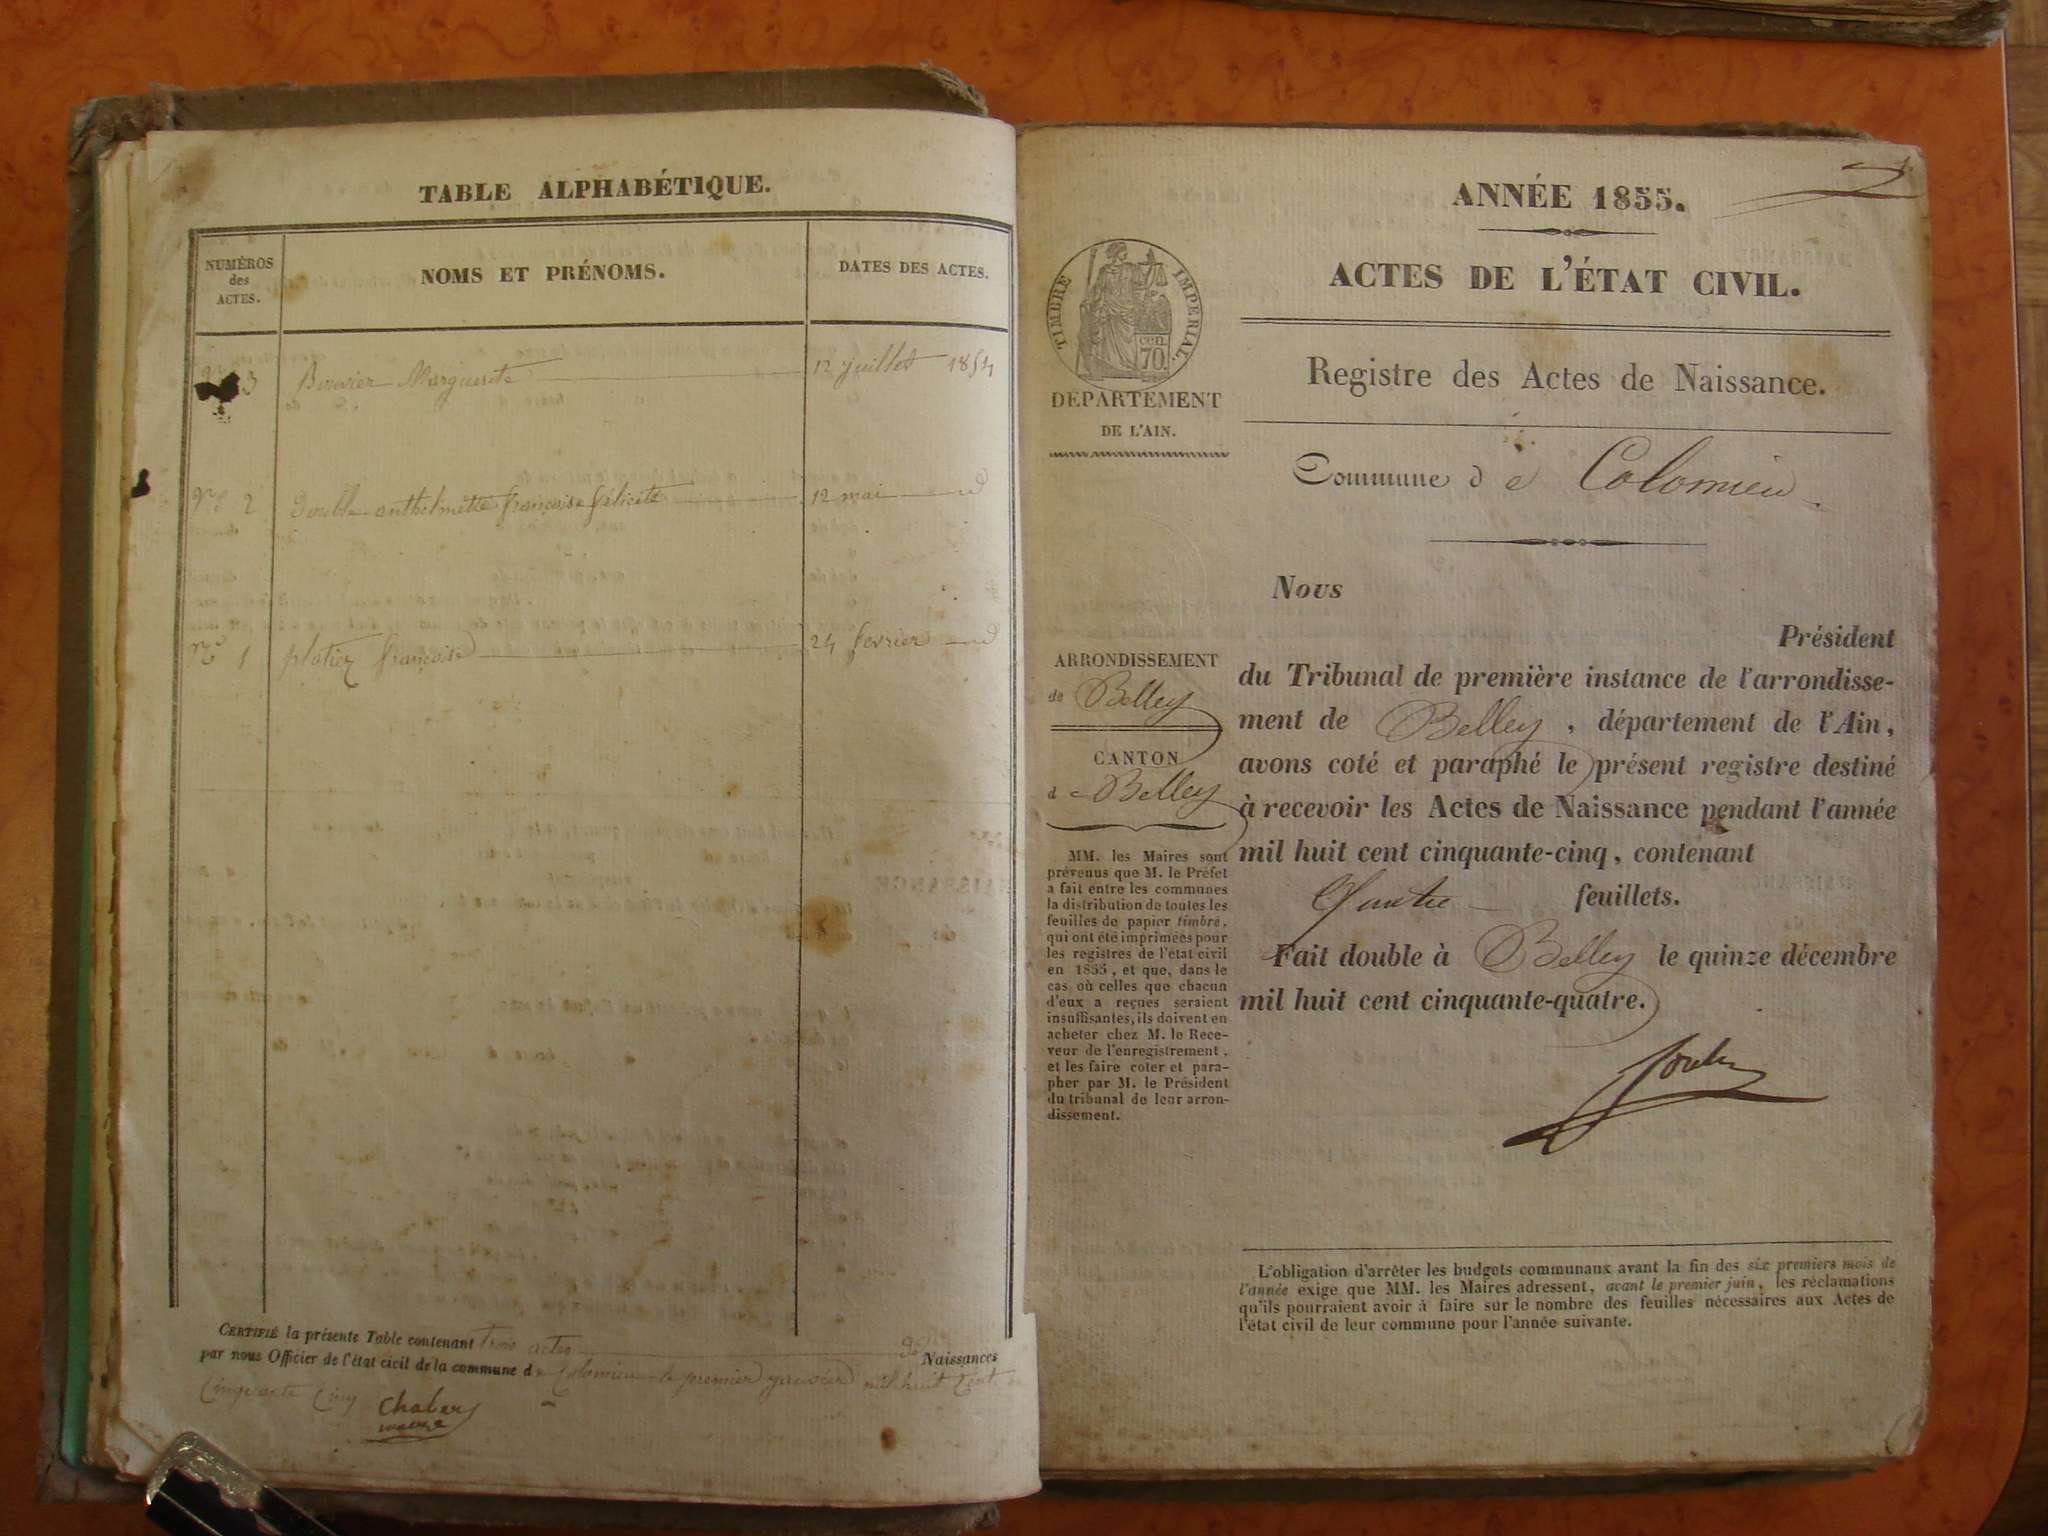 TABLE ALPHABÉTIQUE.
NUMÉROS
des
ACTES.
NOMS ET PRÉNOMS.
DATES DES ACTES.
3 Bouvier Marguerite 12 juillet 1854
No 2 anthelmette françoise félicité 12 mai id
No 1 platier françoise 24 fevrier id
CERTIFIÉ la présente Table contenant trois actes de Naissances
par nous Officier de l'état civil de la commune de Colomieu le premier janvier mil huit Cent
Cinquante Cinq Chaber
maire
ANNÉE 1855.
ACTES DE L'ÉTAT CIVIL.
TIMBRE IMPÉRIAL.
cen.
70.
DÉPARTEMENT
DE L'AIN.
Registre des Actes de Naissance.
Commune de Colomieu
ARRONDISSEMENT
de Belley
CANTON
de Belley
MM. les Maires sont
prévenus que M. le Préfet
a fait entre les communes
la distribution de toutes les
feuilles de papier timbré,
qui ont été imprimées pour
les registres de l'état civil
en 1855, et que, dans le
cas où celles que chacun
d'eux a reçues seraient
insuffisantes, ils doivent en
acheter chez M. le Rece-
veur de l'enregistrement,
et les faire coter et para-
pher par M. le Président
du tribunal de leur arron-
dissement.
Nous
Président
du Tribunal de première instance de l'arrondisse-
ment de Belley, département de l'Ain,
avons coté et paraphé le présent registre destiné
à recevoir les Actes de Naissance pendant l'année
mil huit cent cinquante-cinq, contenant
Quatre feuillets.
Fait double à Belley le quinze décembre
mil huit cent cinquante-quatre.
L'obligation d'arrêter les budgets communaux avant la fin des six premiers mois de
l'année exige que MM. les Maires adressent, avant le premier juin, les réclamations
qu'ils pourraient avoir à faire sur le nombre des feuilles nécessaires aux Actes de
l'état civil de leur commune pour l'année suivante.